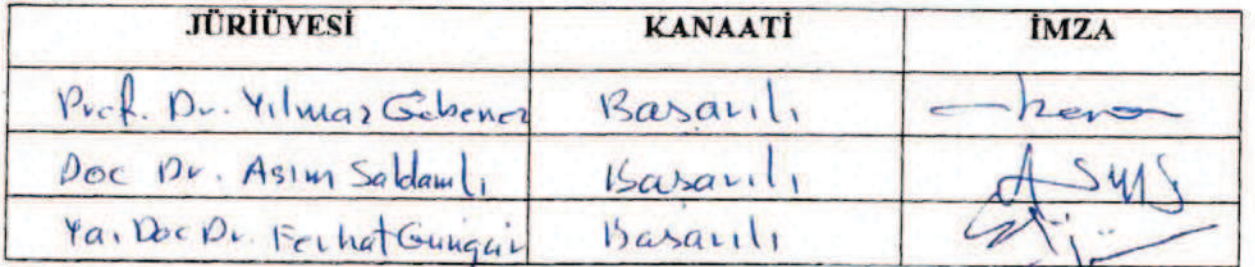 JÜRİÜYESİ KANAATİ İMZA
Prof. Dr. Yılmaz Gebenez Basarılı
Doc Dr. Asım Saldamlı Basarılı
Ya. Doc Dr. Ferhat Güngör Basarılı